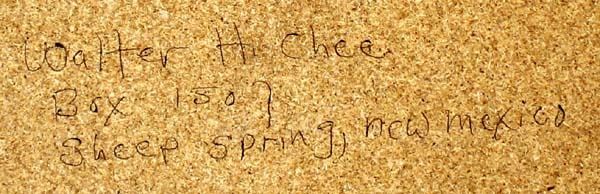 Walter H. Chee
Box 1507
Sheep Spring, new mexico